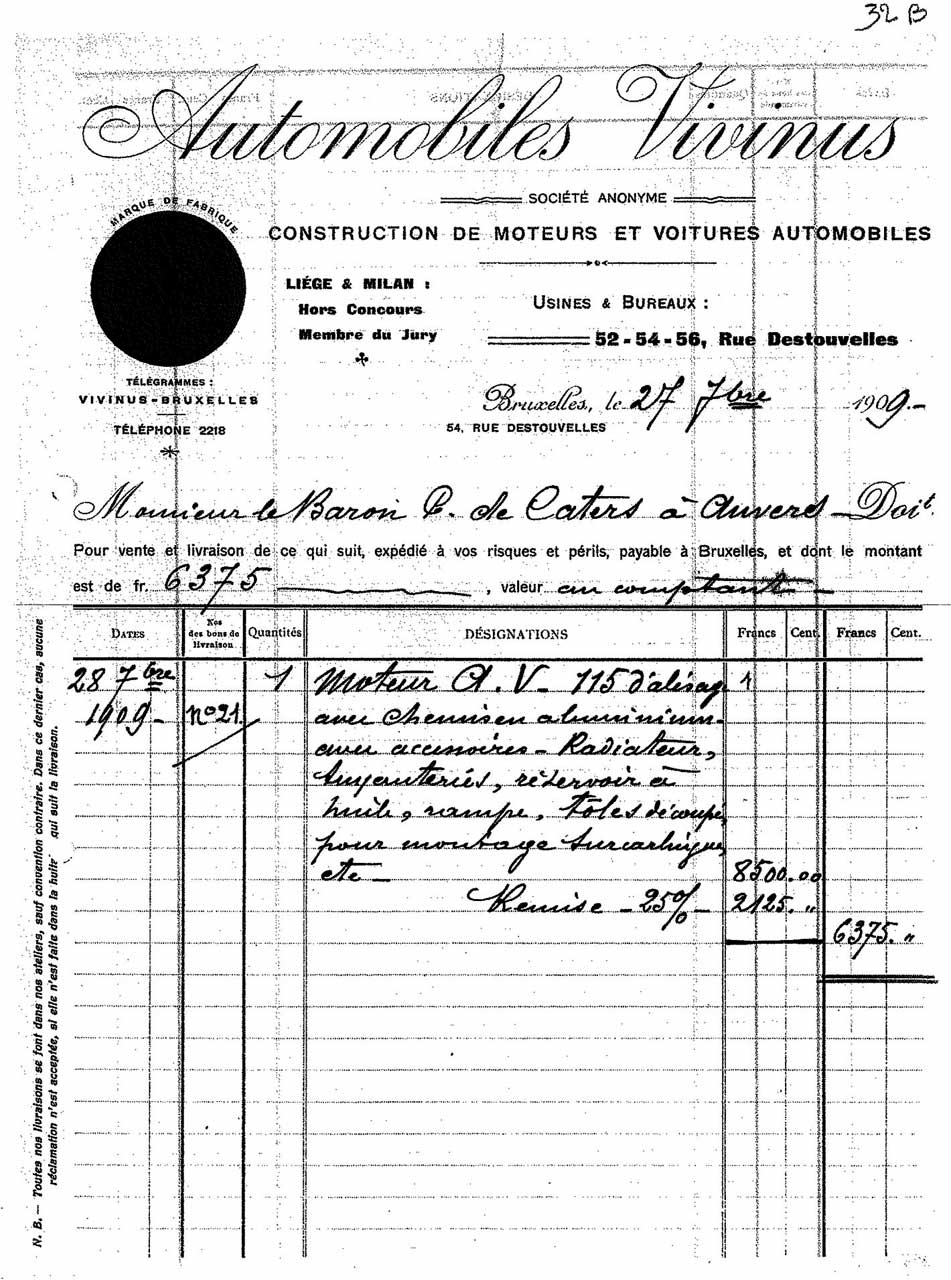 32 B
Automobiles Vivinus
SOCIÉTÉ ANONYME
MARQUE DE FABRIQUE
CONSTRUCTION DE MOTEURS ET VOITURES AUTOMOBILES
LIÉGE & MILAN :
Hors Concours
Membre du Jury
USINES & BUREAUX :
52-54-56, Rue Destouvelles
TÉLÉGRAMMES :
VIVINUS-BRUXELLES
TÉLÉPHONE 2218
Bruxelles, le 27 7bre 1909.-
54, RUE DESTOUVELLES
Monsieur le Baron P. de Caters à Anvers - Doit
Pour vente et livraison de ce qui suit, expédié à vos risques et périls, payable à Bruxelles, et dont le montant
est de fr. 6375 , valeur au comptant -
DATES Nos des bons de livraison Quantités DÉSIGNATIONS Francs Cent. Francs Cent.
28 7bre 1 Moteur A. V- 115 d'alésage
1909- no 21 avec chemis en aluminium-
avec accessoires - Radiateur,
tuyauteries, réservoir à
huile, rampe, tôles découpé
pour montage
etc - 8500.00
Remise - 25% - 2125. "
6375. "
N. B. — Toutes nos livraisons se font dans nos ateliers, sauf convention contraire. Dans ce dernier cas, aucune
réclamation n'est acceptée, si elle n'est faite dans la huit qui suit la livraison.